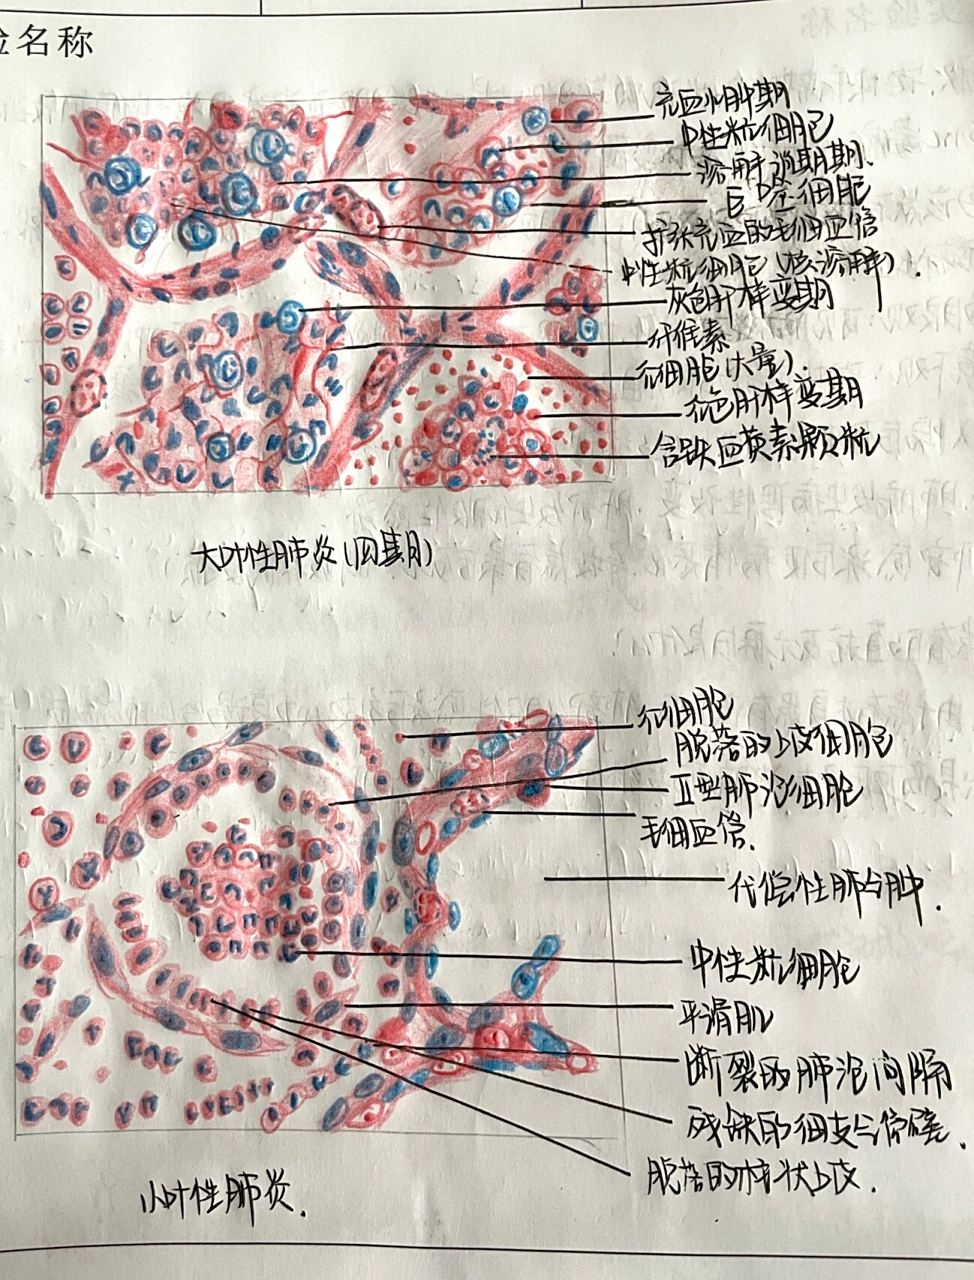 验名称
充血水肿期
中性粒细胞
溶解消期期.
巨噬细胞
扩张充血的毛细血管
中性粒细胞(核溶解).
灰色肝样变期
纤维素
红细胞(大量)
红色肝样变期
含铁血黄素颗粒
大叶性肺炎(四期)
红细胞
脱落的上皮细胞
Ⅱ型肺泡细胞
毛细血管.
代偿性肺气肿.
中性粒细胞
平滑肌
断裂的肺泡间隔
残缺的细支气管壁.
脱落的柱状上皮.
小叶性肺炎.